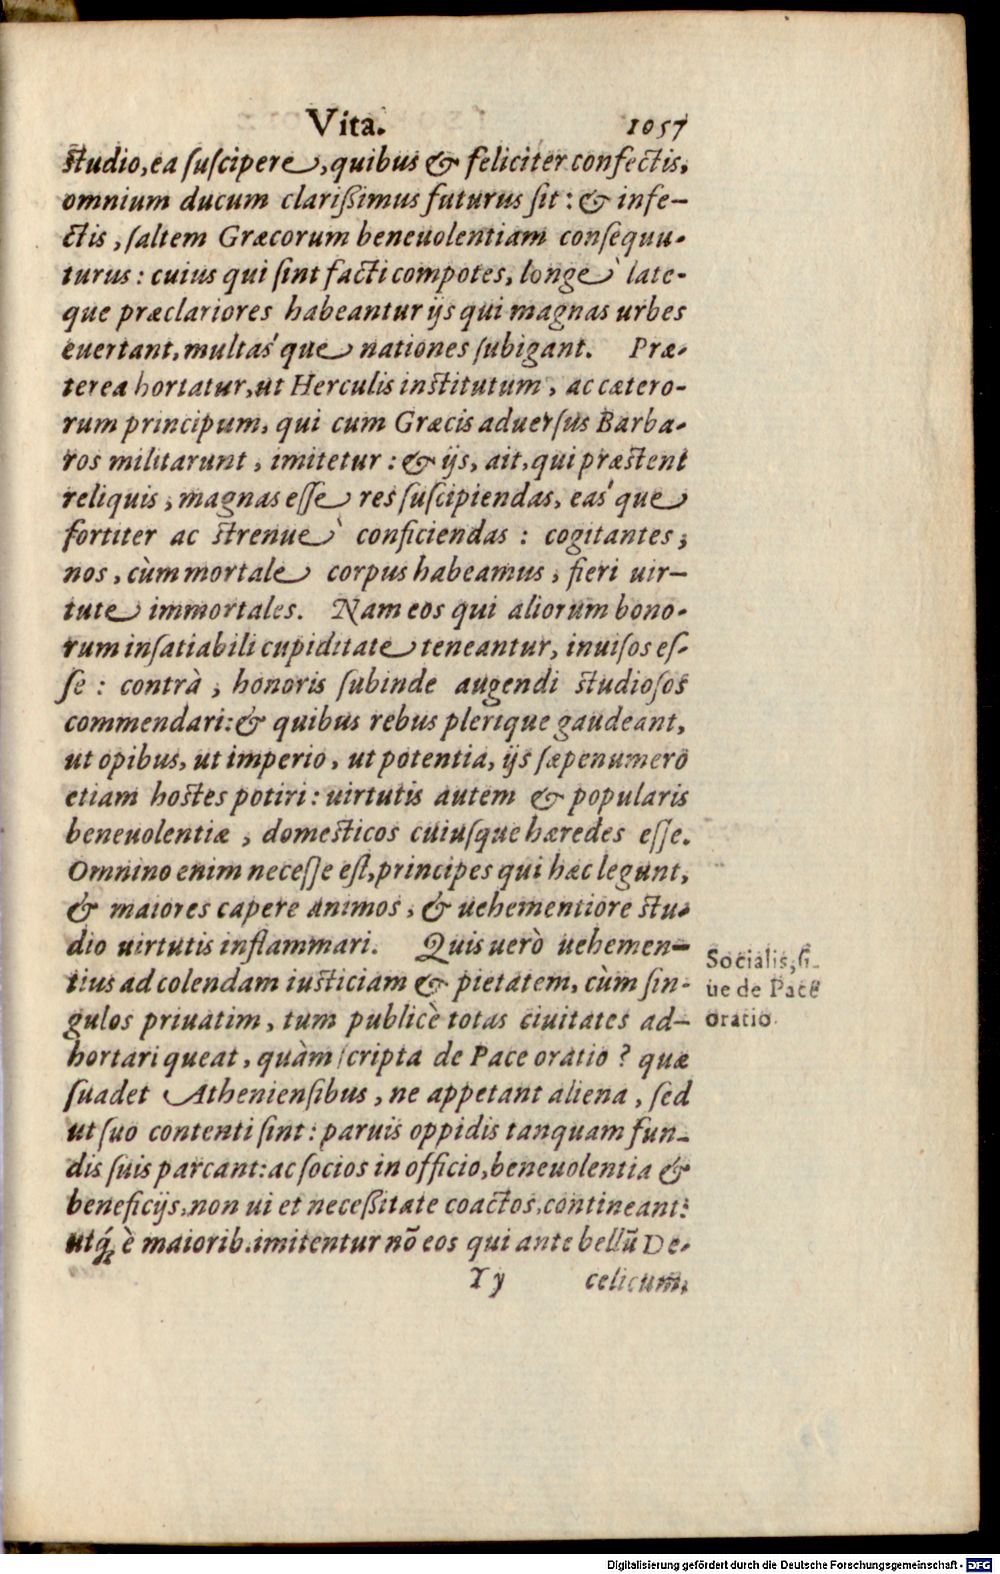 Vita. 1057
ſtudio, ea ſuſcipere, quibus & feliciter confectis,
omnium ducum clarißimus futurus ſit: & infe-
ctis, ſaltem Græcorum beneuolentiam conſequu-
turus: cuius qui ſint facti compotes, longè late-
que præclariores habeantur ijs qui magnas urbes
euertant, multas´que nationes ſubigant. Præ-
terea hortatur, ut Herculis inſtitutum, ac cætero-
rum principum, qui cum Græcis aduerſus Barba-
ros militarunt, imitetur: & ijs, ait, qui præſtent
reliquis, magnas eſſe res ſuſcipiendas, eas´que
fortiter ac ſtrenuè conficiendas: cogitantes,
nos, cùm mortale corpus habeamus, fieri uir-
tute immortales. Nam eos qui aliorum bono-
rum inſatiabili cupiditate teneantur, inuiſos eſ-
ſe: contrà, honoris ſubinde augendi ſtudioſos
commendari: & quibus rebus plerique gaudeant,
ut opibus, ut imperio, ut potentia, ijs ſæpenumero
etiam hoſtes potiri: uirtutis autem & popularis
beneuolentiæ, domeſticos cuiuſque hæredes eſſe.
Omnino enim neceſſe eſt, principes qui hæc legunt,
& maiores capere animos, & uehementiore ſtu-
dio uirtutis inflammari. Quis uerò uehemen-
tius ad colendam iuſticiam & pietatem, cùm ſin-
gulos priuatim, tum publicè totas ciuitates ad-
hortari queat, quàm ſcripta de Pace oratio? quæ
ſuadet Athenienſibus, ne appetant aliena, ſed
ut ſuo contenti ſint: paruis oppidis tanquam fun-
dis ſuis parcant: ac ſocios in officio, beneuolentia &
beneficijs, non ui et neceßitate coactos, contineant:
utq́; è maiorib. imitentur nõ eos qui ante bellũ De-
Yy celicum,
Socialis, ſi-
ue de Pace
oratio.
Digitalisierung gefördert durch die Deutsche Forschungsgemeinschaft - DFG